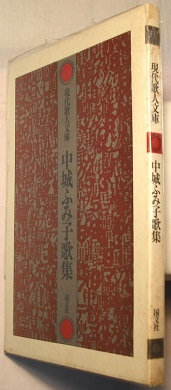 現代歌人文庫
中城ふみ子歌集
国文社
現代歌人文庫
中城ふみ子歌集
国文社